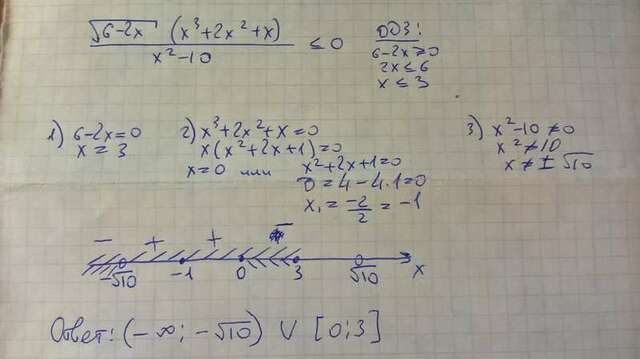 √6-2x (x³+2x²+x) / x²-10 ≤ 0
ОДЗ:
6-2x≥0
2x≤6
x≤3
1) 6-2x=0
x=3
2) x³+2x²+x=0
x(x²+2x+1)=0
x=0 или x²+2x+1=0
D=4-4·1=0
x₁=-2/2=-1
3) x²-10≠0
x²≠10
x≠±√10
- + + -
-√10 -1 0 3 √10 x
Ответ: (-∞; -√10) ∪ [0;3]